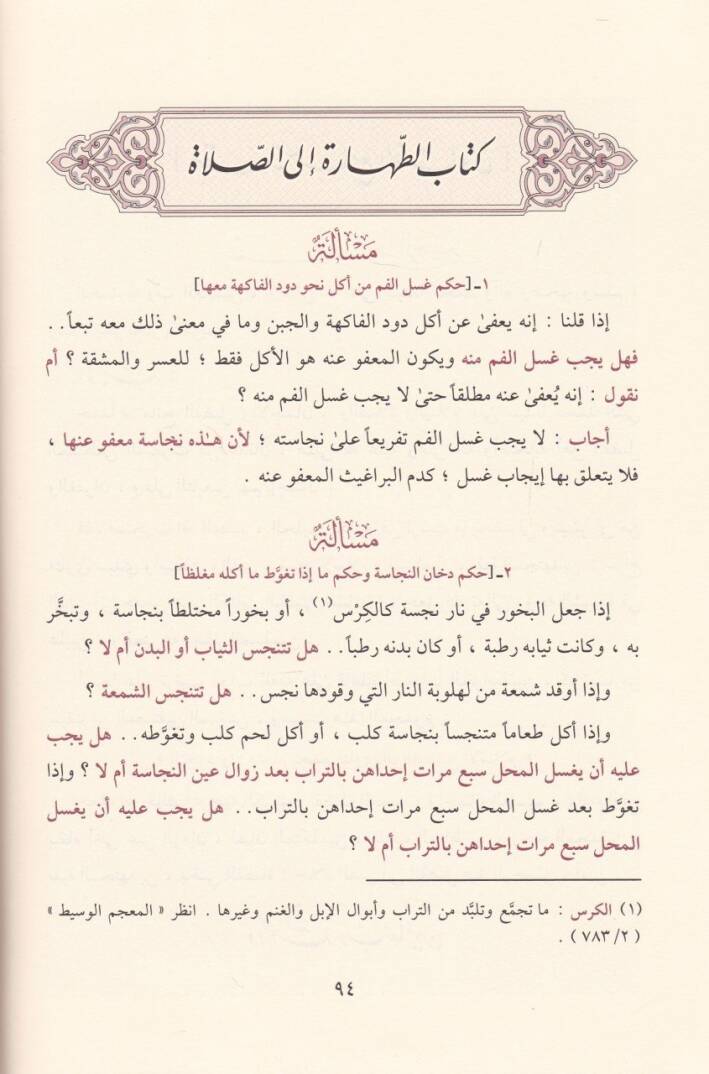 كتاب الطّهارة إلى الصّلاة
مَسْأَلَةٌ
١ـ [حكم غسل الفم من أكل نحو دود الفاكهة معها]
إذا قلنا : إنه يعفىٰ عن أكل دود الفاكهة والجبن وما في معنىٰ ذلك معه تبعاً..
فهل يجب غسل الفم منه ويكون المعفو عنه هو الأكل فقط ؛ للعسر والمشقة ؟ أم
نقول : إنه يُعفىٰ عنه مطلقاً حتىٰ لا يجب غسل الفم منه ؟
أجاب : لا يجب غسل الفم تفريعاً علىٰ نجاسته ؛ لأن هـٰذه نجاسة معفو عنها ،
فلا يتعلق بها إيجاب غسل ؛ كدم البراغيث المعفو عنه .
مَسْأَلَةٌ
٢ـ [حكم دخان النجاسة وحكم ما إذا تغوَّط ما أكله مغلظاً]
إذا جعل البخور في نار نجسة كالكِرْس(١) ، أو بخوراً مختلطاً بنجاسة ، وتبخَّر
به ، وكانت ثيابه رطبة ، أو كان بدنه رطباً.. هل تتنجس الثياب أو البدن أم لا ؟
وإذا أوقد شمعة من لهلوبة النار التي وقودها نجس.. هل تتنجس الشمعة ؟
وإذا أكل طعاماً متنجساً بنجاسة كلب ، أو أكل لحم كلب وتغوَّطه.. هل يجب
عليه أن يغسل المحل سبع مرات إحداهن بالتراب بعد زوال عين النجاسة أم لا ؟ وإذا
تغوَّط بعد غسل المحل سبع مرات إحداهن بالتراب.. هل يجب عليه أن يغسل
المحل سبع مرات إحداهن بالتراب أم لا ؟
(١) الكرس : ما تجمَّع وتلبَّد من التراب وأبوال الإبل والغنم وغيرها . انظر « المعجم الوسيط »
( ٢/ ٧٨٣ ) .
٩٤